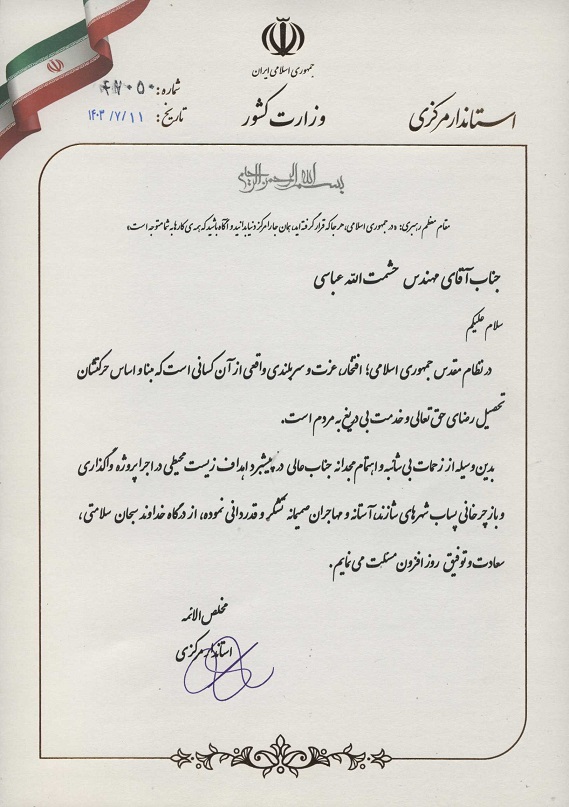 جمهوری اسلامی ایران
وزارت کشور
استاندار مرکزی
شماره:
تاریخ: ۱۴۰۳/۷/۱۱
بسم الله الرحمن الرحیم
مقام معظم رهبری: «در جمهوری اسلامی، هر جا که قرار گرفته اید، همان جا را مرکز دنیا بدانید و آگاه باشید که همه ی کارها به شما متوجه است»
جناب آقای مهندس حشمت الله عباسی
سلام علیکم
در نظام مقدس جمهوری اسلامی؛ افتخار، عزت و سربلندی واقعی از آن کسانی است که مبنا و اساس حرکتشان
تحصیل رضای حق تعالی و خدمت بی دریغ به مردم است.
بدین وسیله از زحمات بی شائبه و اهتمام مجدانه جناب عالی در پیشبرد اهداف زیست محیطی در اجرا پروژه واگذاری
و بازچرخانی پساب شهرهای شازند، آستانه و مهاجران صمیمانه تشکر و قدردانی نموده، از درگاه خداوند سبحان سلامتی،
سعادت و توفیق روز افزون مسئلت می نمایم.
مخلص الائمه
استاندار مرکزی